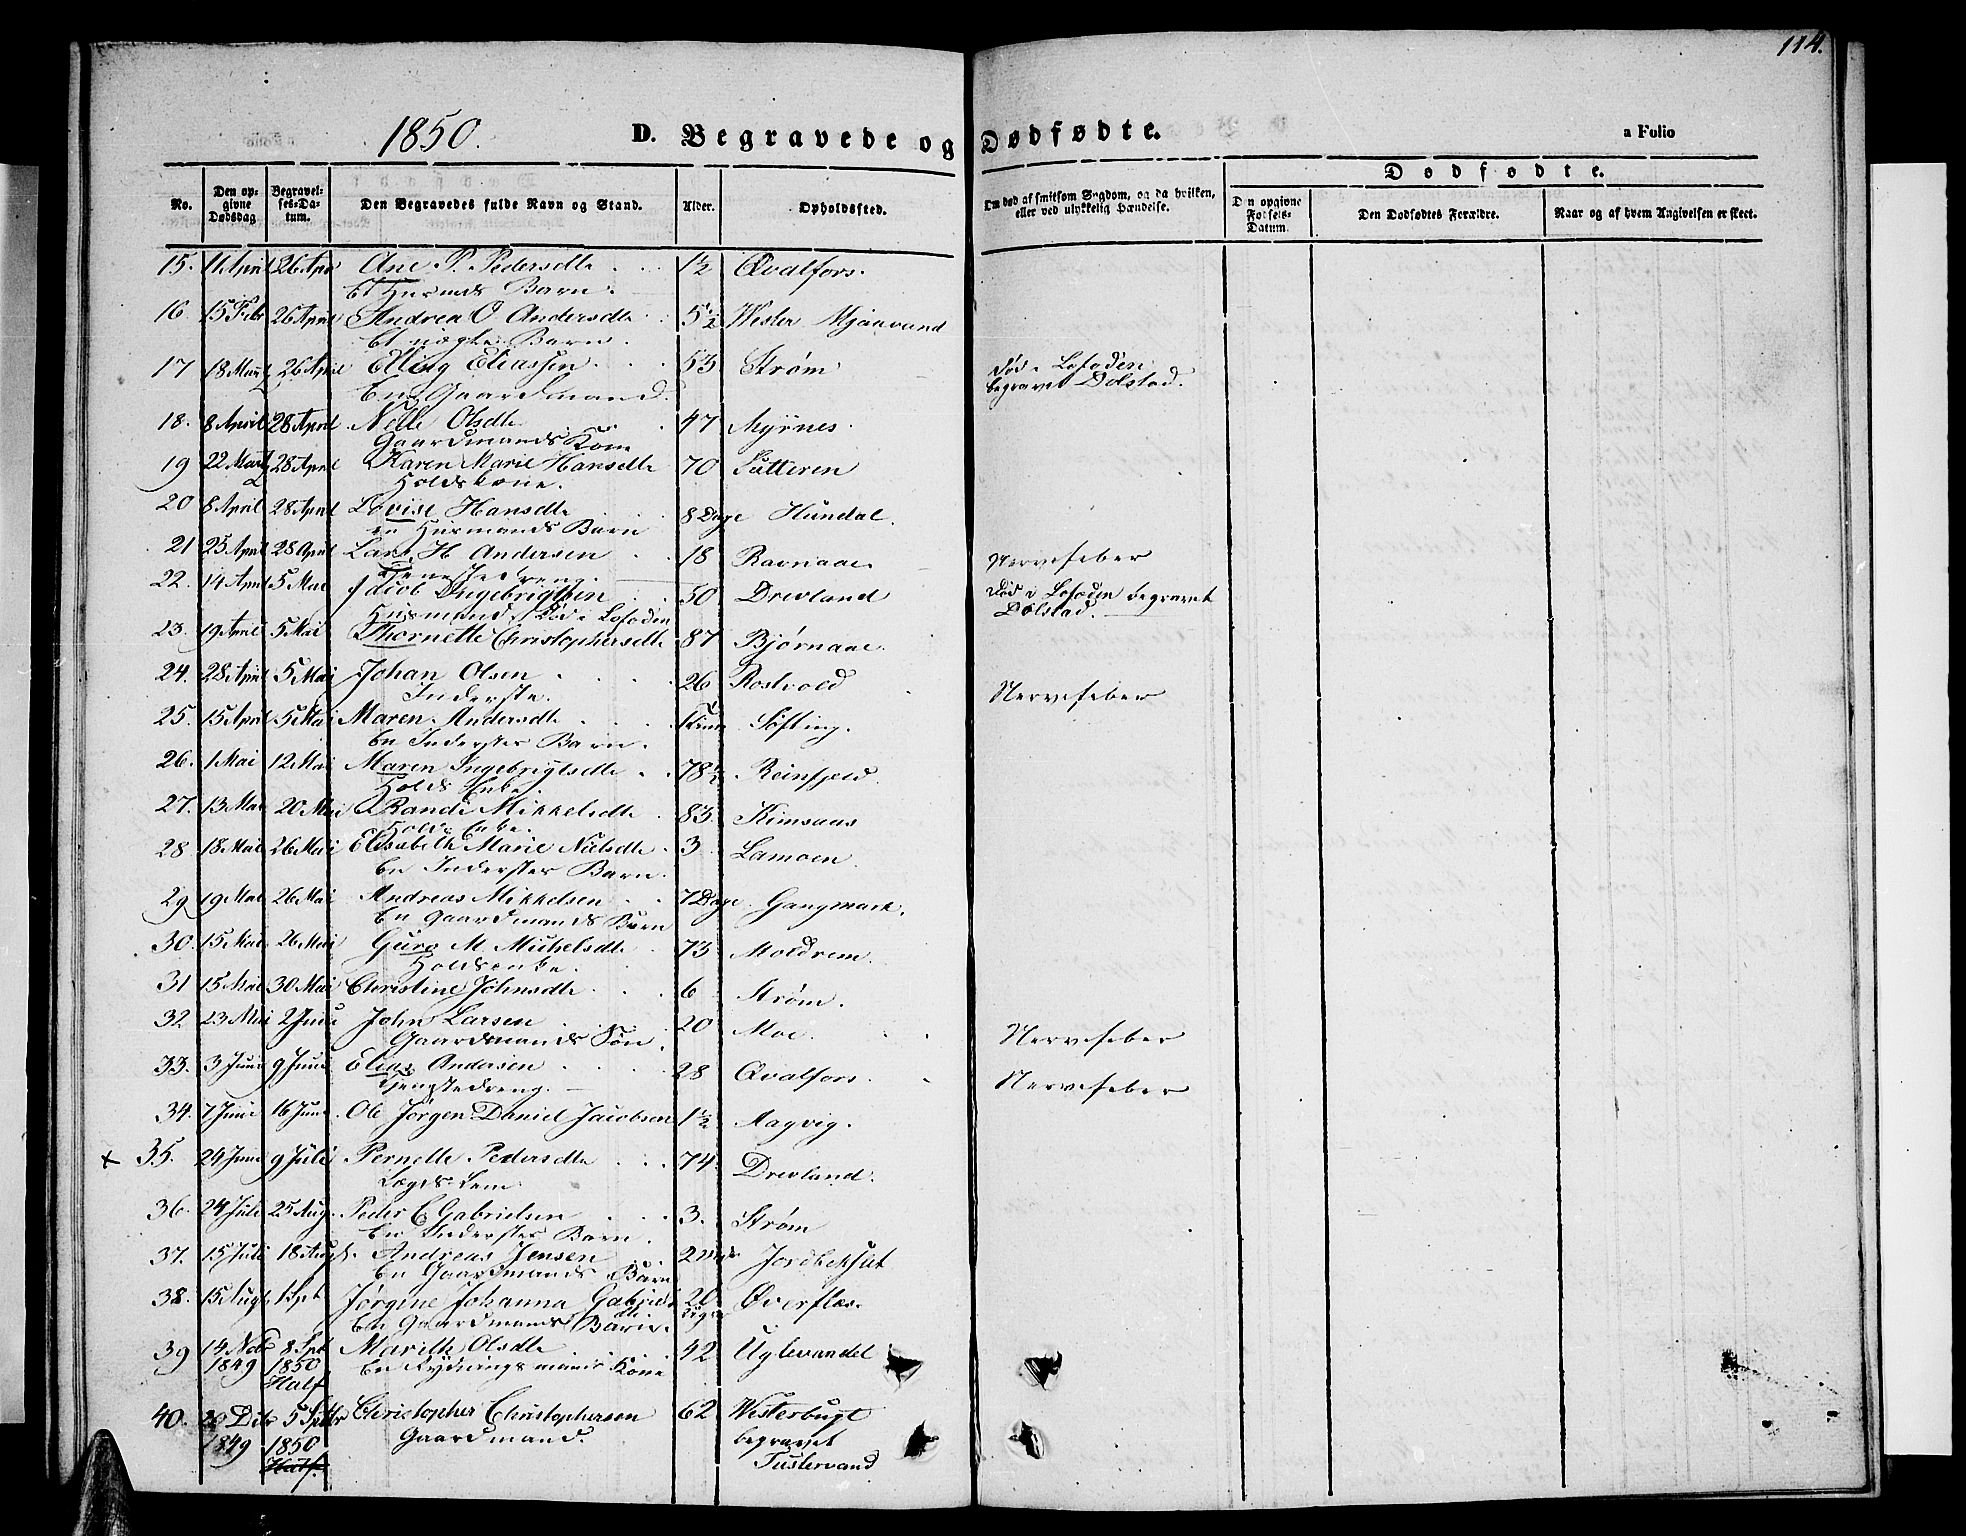 114.
1850. D. Begravede og Dødfødte. a Folio
Dødfødte.
No. Den opgivne Dødsdag Begravelses-Datum. Den Begravedes fulde Navn og Stand. Alder. Opholdssted. Om død af smitsom Sygdom, og da hvilken, eller ved ulykkelig Hændelse. Den opgivne Fødsels-Datum. Den Dødfødtes Forældre. Naar og af hvem Angivelsen er skeet.
15. 11 April 26 Apr Ane P. Pedersdtr 1½ Qvalfors.
Et Husmds Barn.
16 15 Febr 26 April Andrea O Andersdtr 5½ Wester Mjaavand
Et uægte Barn.
17 18 Marts 26 April Elling Eliassen 53 Strøm død i Lofoden
En Gaardmand. begravet Dolstad.
18. 8 April 28 April Nelle Olsdtr 47 Myrnes.
Gaardmands Kone
19 22 Marts 28 April Karen Marie Hansdtr 70 Sutteren
Holdskone.
20 8 April 28 April Lovise Hansdtr 8 Dage Hundal.
en Husmands Barn
21 25 April 28 April Lars H Andersen 18 Ravnaae. Nervefeber
Tjenestedreng.
22. 14 April 5 Mai Jacob Ingebrigtsen 50 Drevland Død i Lofoden begravet
Husmand død i Lofoden Dolstad.
23. 19 April 5 Mai Thornette Christophersdtr 87 Bjørnaae.
24. 28 April 5 Mai Johan Olsen 26 Rosvold Nervefeber
Inderste.
25. 15 April 5 Mai Maren Andersdtr Søfting.
En Inderstes Barn.
26. 1 Mai 12 Mai Maren Ingebrigtsdtr 78½ Reinfjeld.
Holds Enke.
27. 13 Mai 20 Mai Randi Mikkelsdtr 83. Kimsaas
Holds Enke.
28 18 Mai 26 Mai Elisabeth Marie Nielsdtr 3 Lamoen.
En Inderstes Barn.
29 19 Mai 26 Mai Andreas Mikkelsen 7 Dage. Gangmark.
En Gaardmands Barn
30. 15 Mai 26 Mai Guro M Michelsdtr 73 Moldrem.
Holdsenke.
31 15 Mai 30 Mai Christine Johnsdtr 6 Strøm.
32 23 Mai 2 Juni John Larsen 20 Moe. Nervefeber
Gaardmands Søn.
33. 3 Juni 9 Juni Elias Andersen 28 Qvalfors. Nervefeber
Tjenestedreng.
34. 7 Juni 16 Juni. Ole Jørgen Daniel Jacobsen 1½ Aagvig.
x 35. 24 Juni 9 Juli Pernelle Pedersdtr 74. Drevland.
Lægds-Lem.
36. 24 Juli 25 Aug. Peder C Gabrielsen 3. Strøm
En Inderstes Barn.
37. 15 Juli 18 Augst. Andreas Jensen 2 Jordbekslet
En Gaardmands Barn
38. 15 Augt 1 Spt Jørgine Johanna Gabriels 20 Øverflæs.
dtr. Dage
En Gaardmands Barn.
39 14 Nob 8 Spt Marith Olsdtr 42. Uglevandet
1849 1850 En Rydningsmands Kone
Half
40. Dcbr 5 Sptbr Christopher Christophersen 62 Westerbugt
1849 1850 Gaardmand. begravet
Half. Tustervand